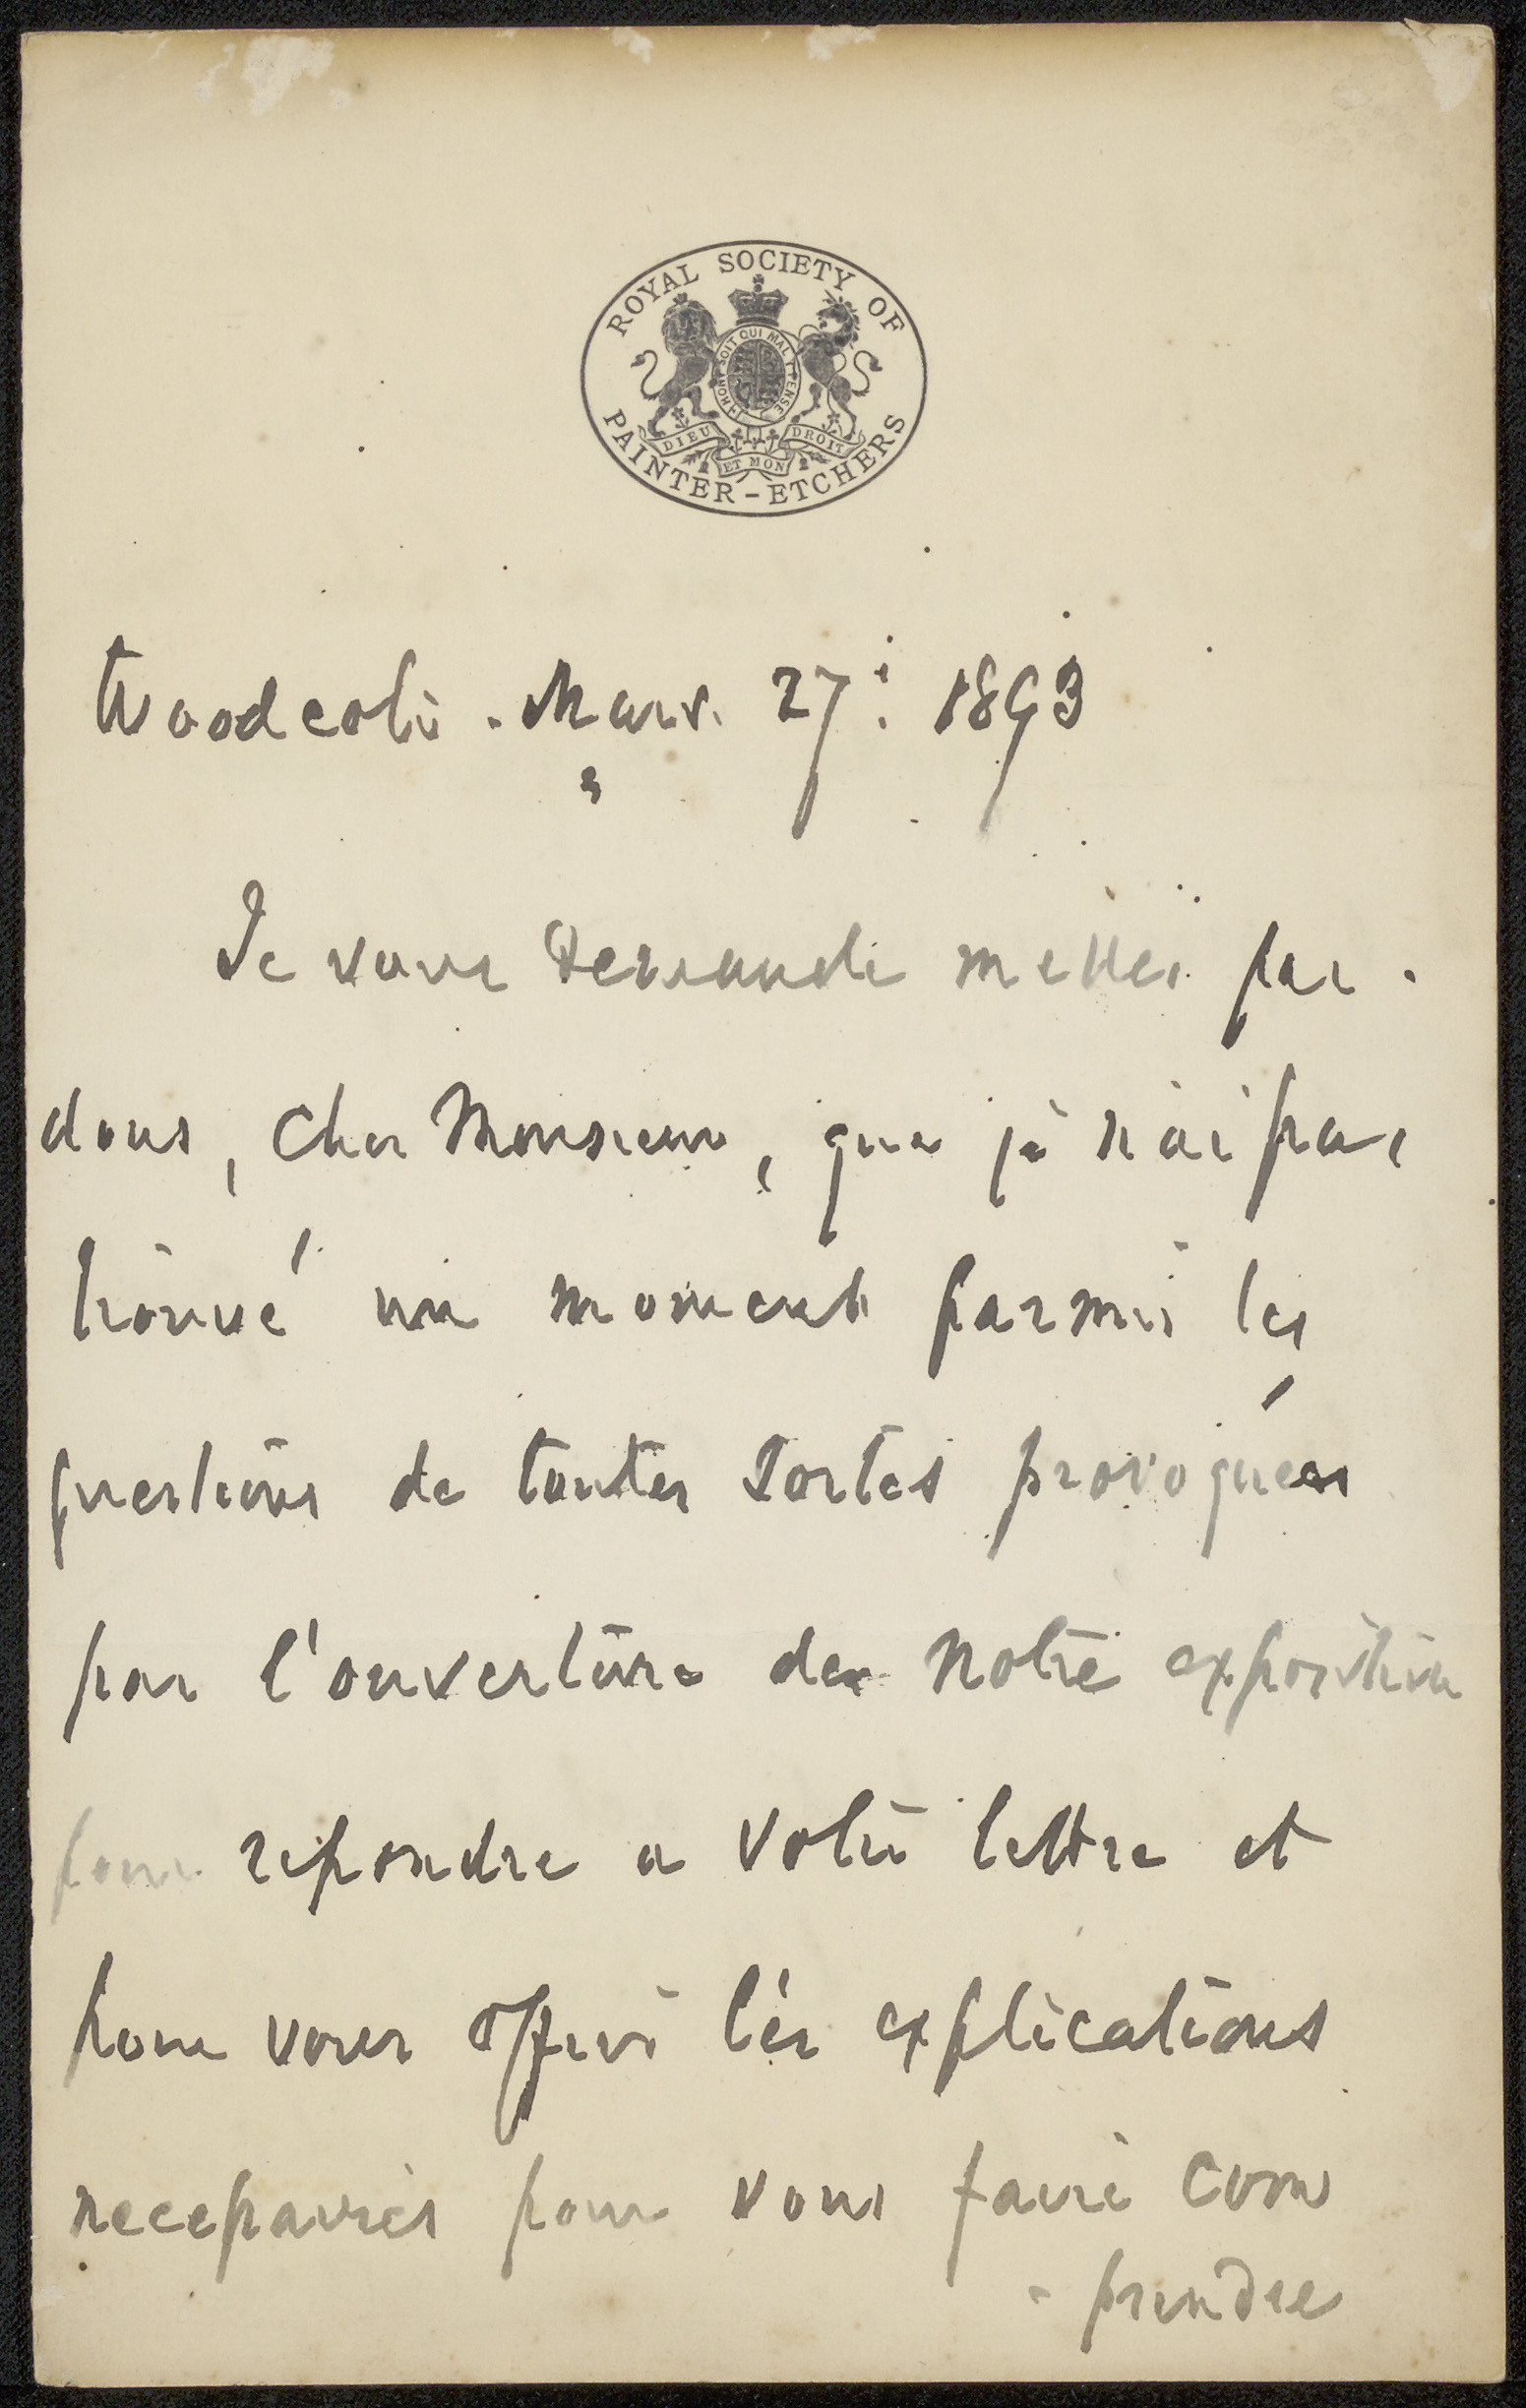 ROYAL SOCIETY OF
HONI SOIT QUI MAL Y PENSE
DIEU ET MON DROIT
PAINTER-ETCHERS
Woodcote. Mars. 27: 1893
Je vous demande milles par-
dons, cher Monsieur, que je n'ai pas
trouvé un moment parmi les
questions de toutes sortes provoquées
par l'ouverture de notre exposition
pour repondre a votre lettre et
pour vous offrir les explications
necessaires pour vous faire com
-prendre